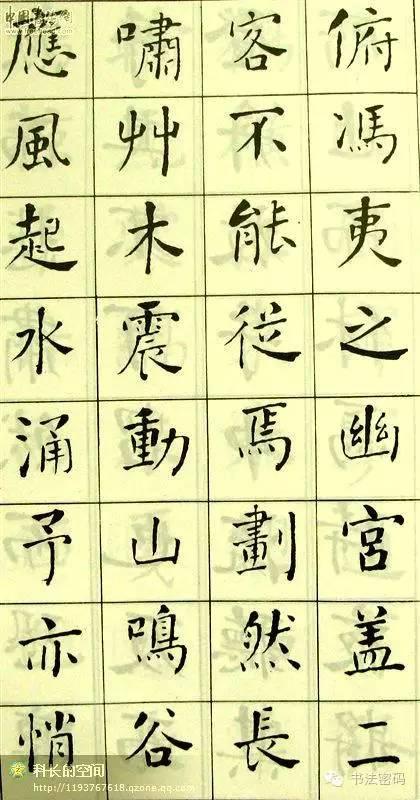 俯馮夷之幽宮盖二
客不能從焉劃然長
嘯艸木震動山鳴谷
應風起水涌予亦悄
科长的空间
http://1193767618.qzone.qq.com
书法密码